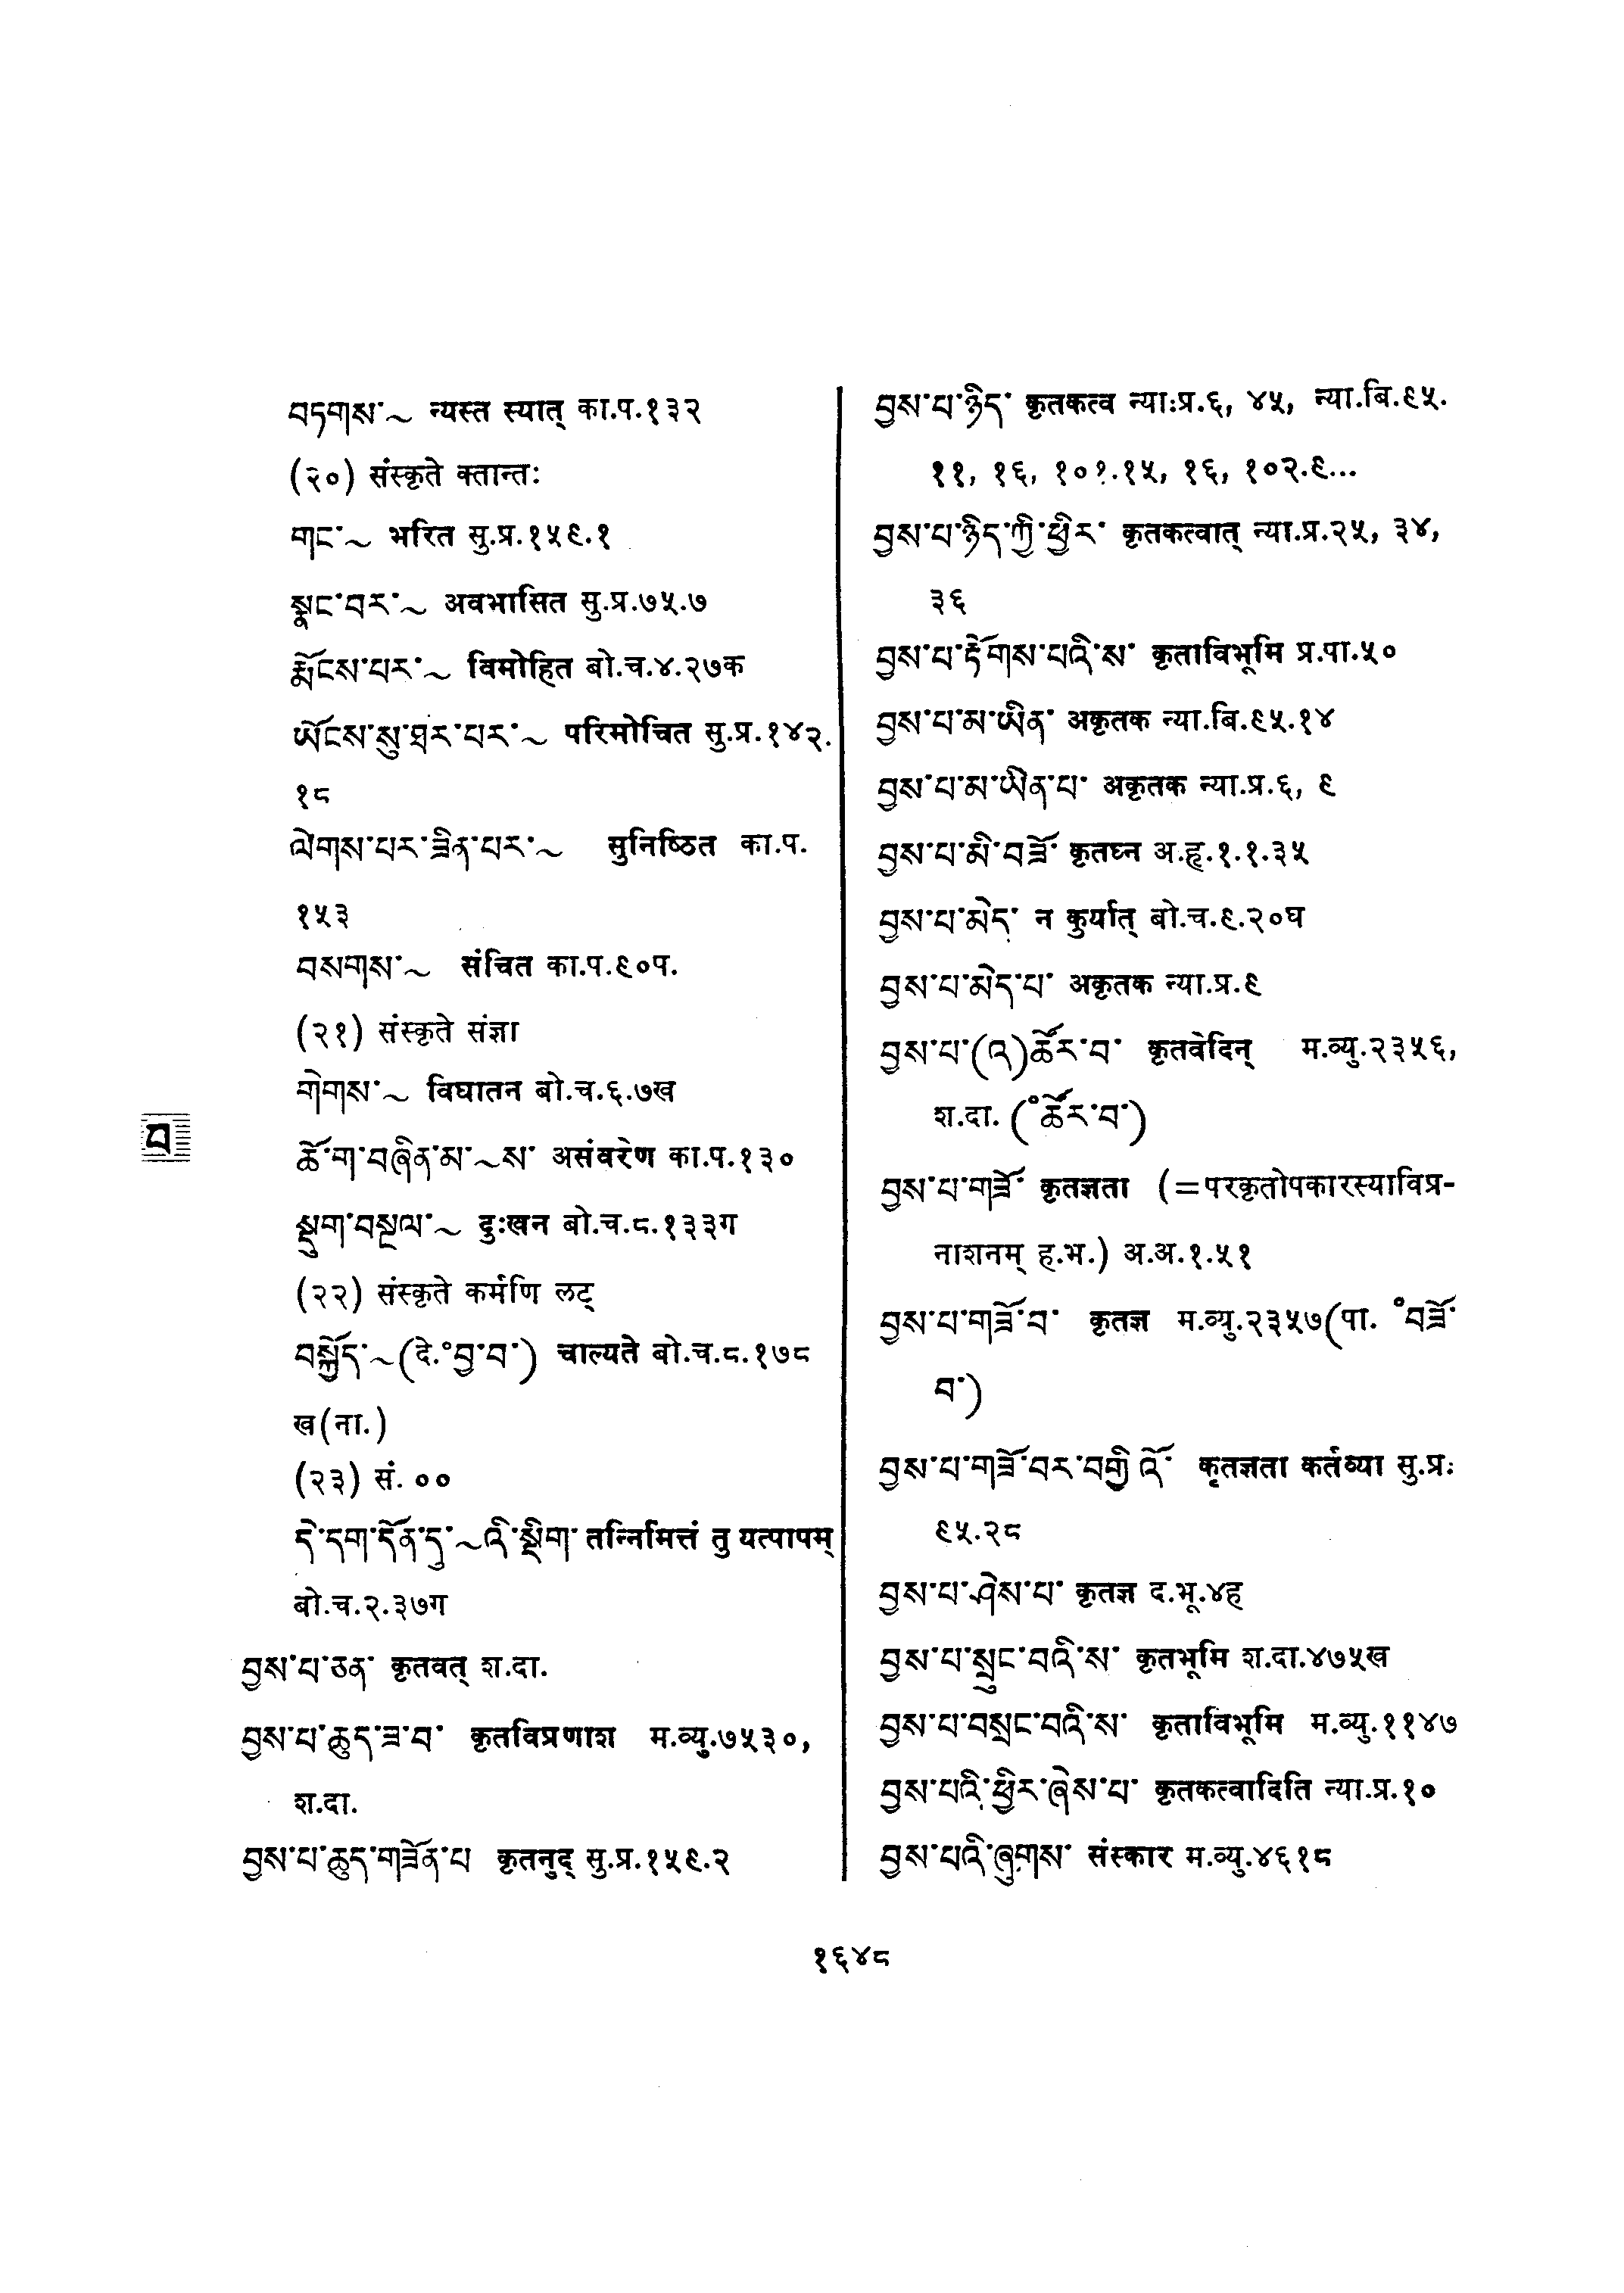 བཏགས་~ न्यस्त स्यात् का.प.१३२
(२०) संस्कृते क्तान्तः
གང་~ भरित सु.प्र.१५९.१
སྣང་བར་~ अवभासित सु.प्र.७५.७
རྨོངས་པར་~ विमोहित बो.च.४.२७क
ཡོངས་སུ་ཐར་པར་~ परिमोचित सु.प्र.१४२.
१८
ལེགས་པར་ཟིན་པར་~ सुनिष्ठित का.प.
१५३
བསགས་~ संचित का.प.९०प.
(२१) संस्कृते संज्ञा
གེགས་~ विघातन बो.च.६.७ख
ཆོ་ག་བཞིན་མ་~ས་ असंवरेण का.प.१३०
སྡུག་བསྔལ་~ दुःखन बो.च.८.१३३ग
(२२) संस्कृते कर्मणि लट्
བསྐྱོད་~(दे.°བྱ་བ་) चाल्यते बो.च.८.१७८
ख(ना.)
(२३) सं. ००
དེ་དག་དོན་དུ་~འི་སྡིག་ तन्निमित्तं तु यत्पापम्
बो.च.२.३७ग
བྱས་པ་ཅན་ कृतवत् श.दा.
བྱས་པ་ཆུད་ཟ་བ་ कृतविप्रणाश म.व्यु.७५३०,
श.दा.
བྱས་པ་ཆུད་གཟོན་པ कृतनुद् सु.प्र.१५९.२
བྱས་པ་ཉིད་ कृतकत्व न्या.प्र.६, ४५, न्या.बि.९५.
११, १६, १०१.१५, १६, १०२.९...
བྱས་པ་ཉིད་ཀྱི་ཕྱིར་ कृतकत्वात् न्या.प्र.२५, ३४,
३६
བྱས་པ་རྟོགས་པའི་ས་ कृताविभूमि प्र.पा.५०
བྱས་པ་མ་ཡིན་ अकृतक न्या.बि.९५.१४
བྱས་པ་མ་ཡིན་པ་ अकृतक न्या.प्र.६, ९
བྱས་པ་མི་བཟོ་ कृतघ्न अ.हृ.१.१.३५
བྱས་པ་མེད་ न कुर्यात् बो.च.९.२०घ
བྱས་པ་མེད་པ་ अकृतक न्या.प्र.९
བྱས་པ་(འ)ཚོར་བ་ कृतवेदिन् म.व्यु.२३५६,
श.दा. (°ཚོར་བ་)
བྱས་པ་གཟོ་ कृतज्ञता (=परकृतोपकारस्याविप्र-
नाशनम् ह.भ.) अ.अ.१.५१
བྱས་པ་གཟོ་བ་ कृतज्ञ म.व्यु.२३५७(पा. °བཟོ་
བ་)
བྱས་པ་གཟོ་བར་བགྱི་འོ་ कृतज्ञता कर्तव्या सु.प्र.
९५.२८
བྱས་པ་ཤེས་པ་ कृतज्ञ द.भू.४ह
བྱས་པ་སྲུང་བའི་ས་ कृतभूमि श.दा.४७५ख
བྱས་པ་བསྲང་བའི་ས་ कृताविभूमि म.व्यु.११४७
བྱས་པའི་ཕྱིར་ཞེས་པ་ कृतकत्वादिति न्या.प्र.१०
བྱས་པའི་ཞུགས་ संस्कार म.व्यु.४६१८
བ
१६४८